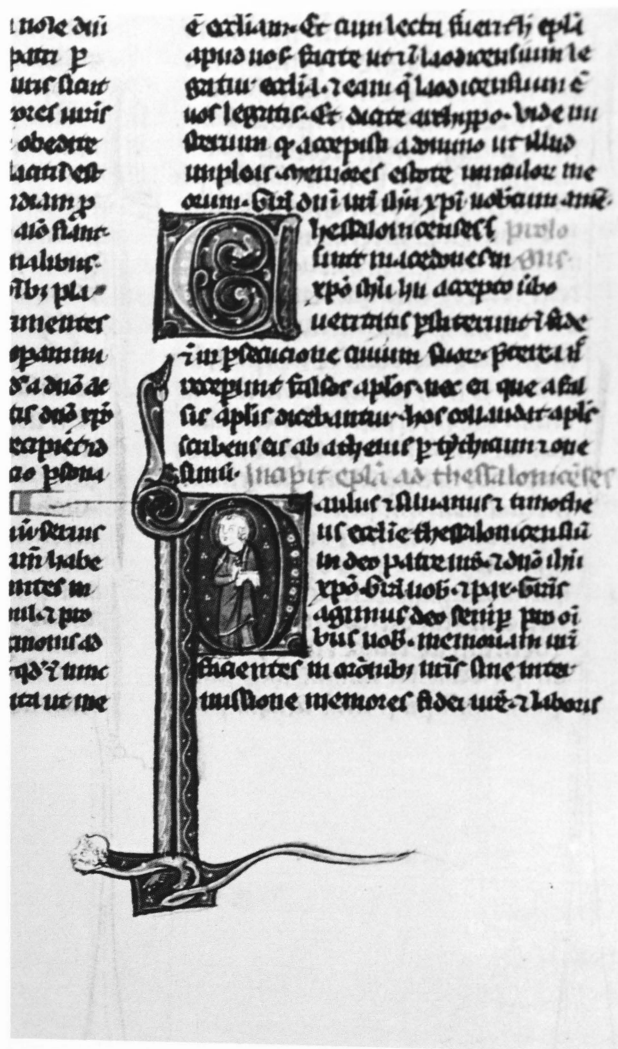 patri ꝑ
uiris sicut
xores uŕis
obedite
lacitū est
ndiam ꝑ
aīo fiant
nalibus·
ībꝫ pla
imentes
opamini
a dn̄o ac
tis dn̄o xp̄o
recipiet id
cio ꝑsona
am̄ habe
antes in
mul ⁊ pro
monius ad
qđ ⁊ nunc
ita ut me
ē eccl̄iam· Et cum lecta fuerit h̄ epl̄a
apud uos· facite ut ⁊ ī laodicensium le
gatur eccl̄ia· ⁊ eam q̄ laodicensium ē
uos legatis· Et dicite archippo· Vide mi
sterium qđ accepisti a domino ut illud
impleas· Memores estote uinculoꝝ me
orum· Gr̄a dn̄i nr̄i ih̄u xp̄i uobiscum amē·
Thessalonicenses prolo
sunt macedones in gus·
xpō ih̄u hii accepto ūbo
ueritatis ꝑstiterunt ī fide
⁊ in ꝑsecucione ciuium suoꝝ· p̄terea n̄
receperunt falsos apl̄os· nec ea que a fal
sis apl̄is dicebantur· hos collaudat apl̄s
scribens eis ab athenis ꝑ tychicum ⁊ one
simū· Incipit epl̄a ad thessalonicēses
Paulus ⁊ siluanus ⁊ timothe
us eccl̄ie thessalonicensiū
in deo patre nr̄o· ⁊ dn̄o ih̄u
xpō· Gr̄a uob̄· ⁊ pax· Gr̄as
agimus deo semꝑ pro oī
bus uob̄· memoriam ur̄i
facientes in orōnibꝫ nr̄is sine inter
missione memores fidei ur̄e· ⁊ laboris